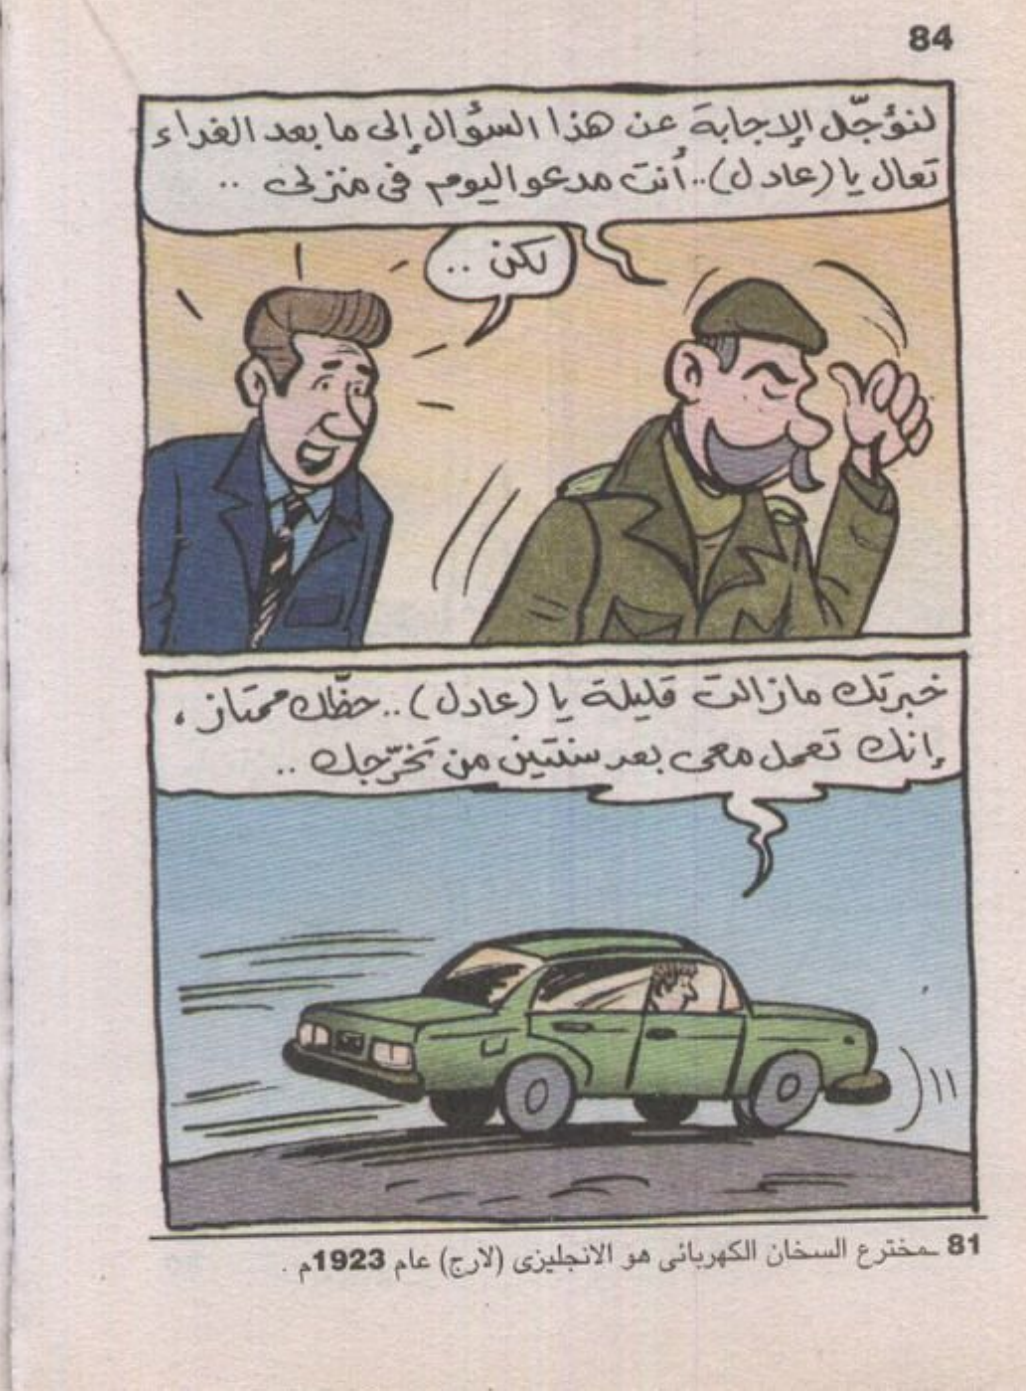 84
لنؤجّل الإجابة عن هذا السؤال إلى ما بعد الغداء
تعال يا (عادل)..أنت مدعو اليوم فى منزلى ..
لكن ..
خبرتك مازالت قليلة يا (عادل)..حظّك ممتاز،
إنك تعمل معى بعد سنتين من تخرّجك ..
81 ـمخترع السخان الكهربائى هو الانجليزى (لارج) عام 1923م .